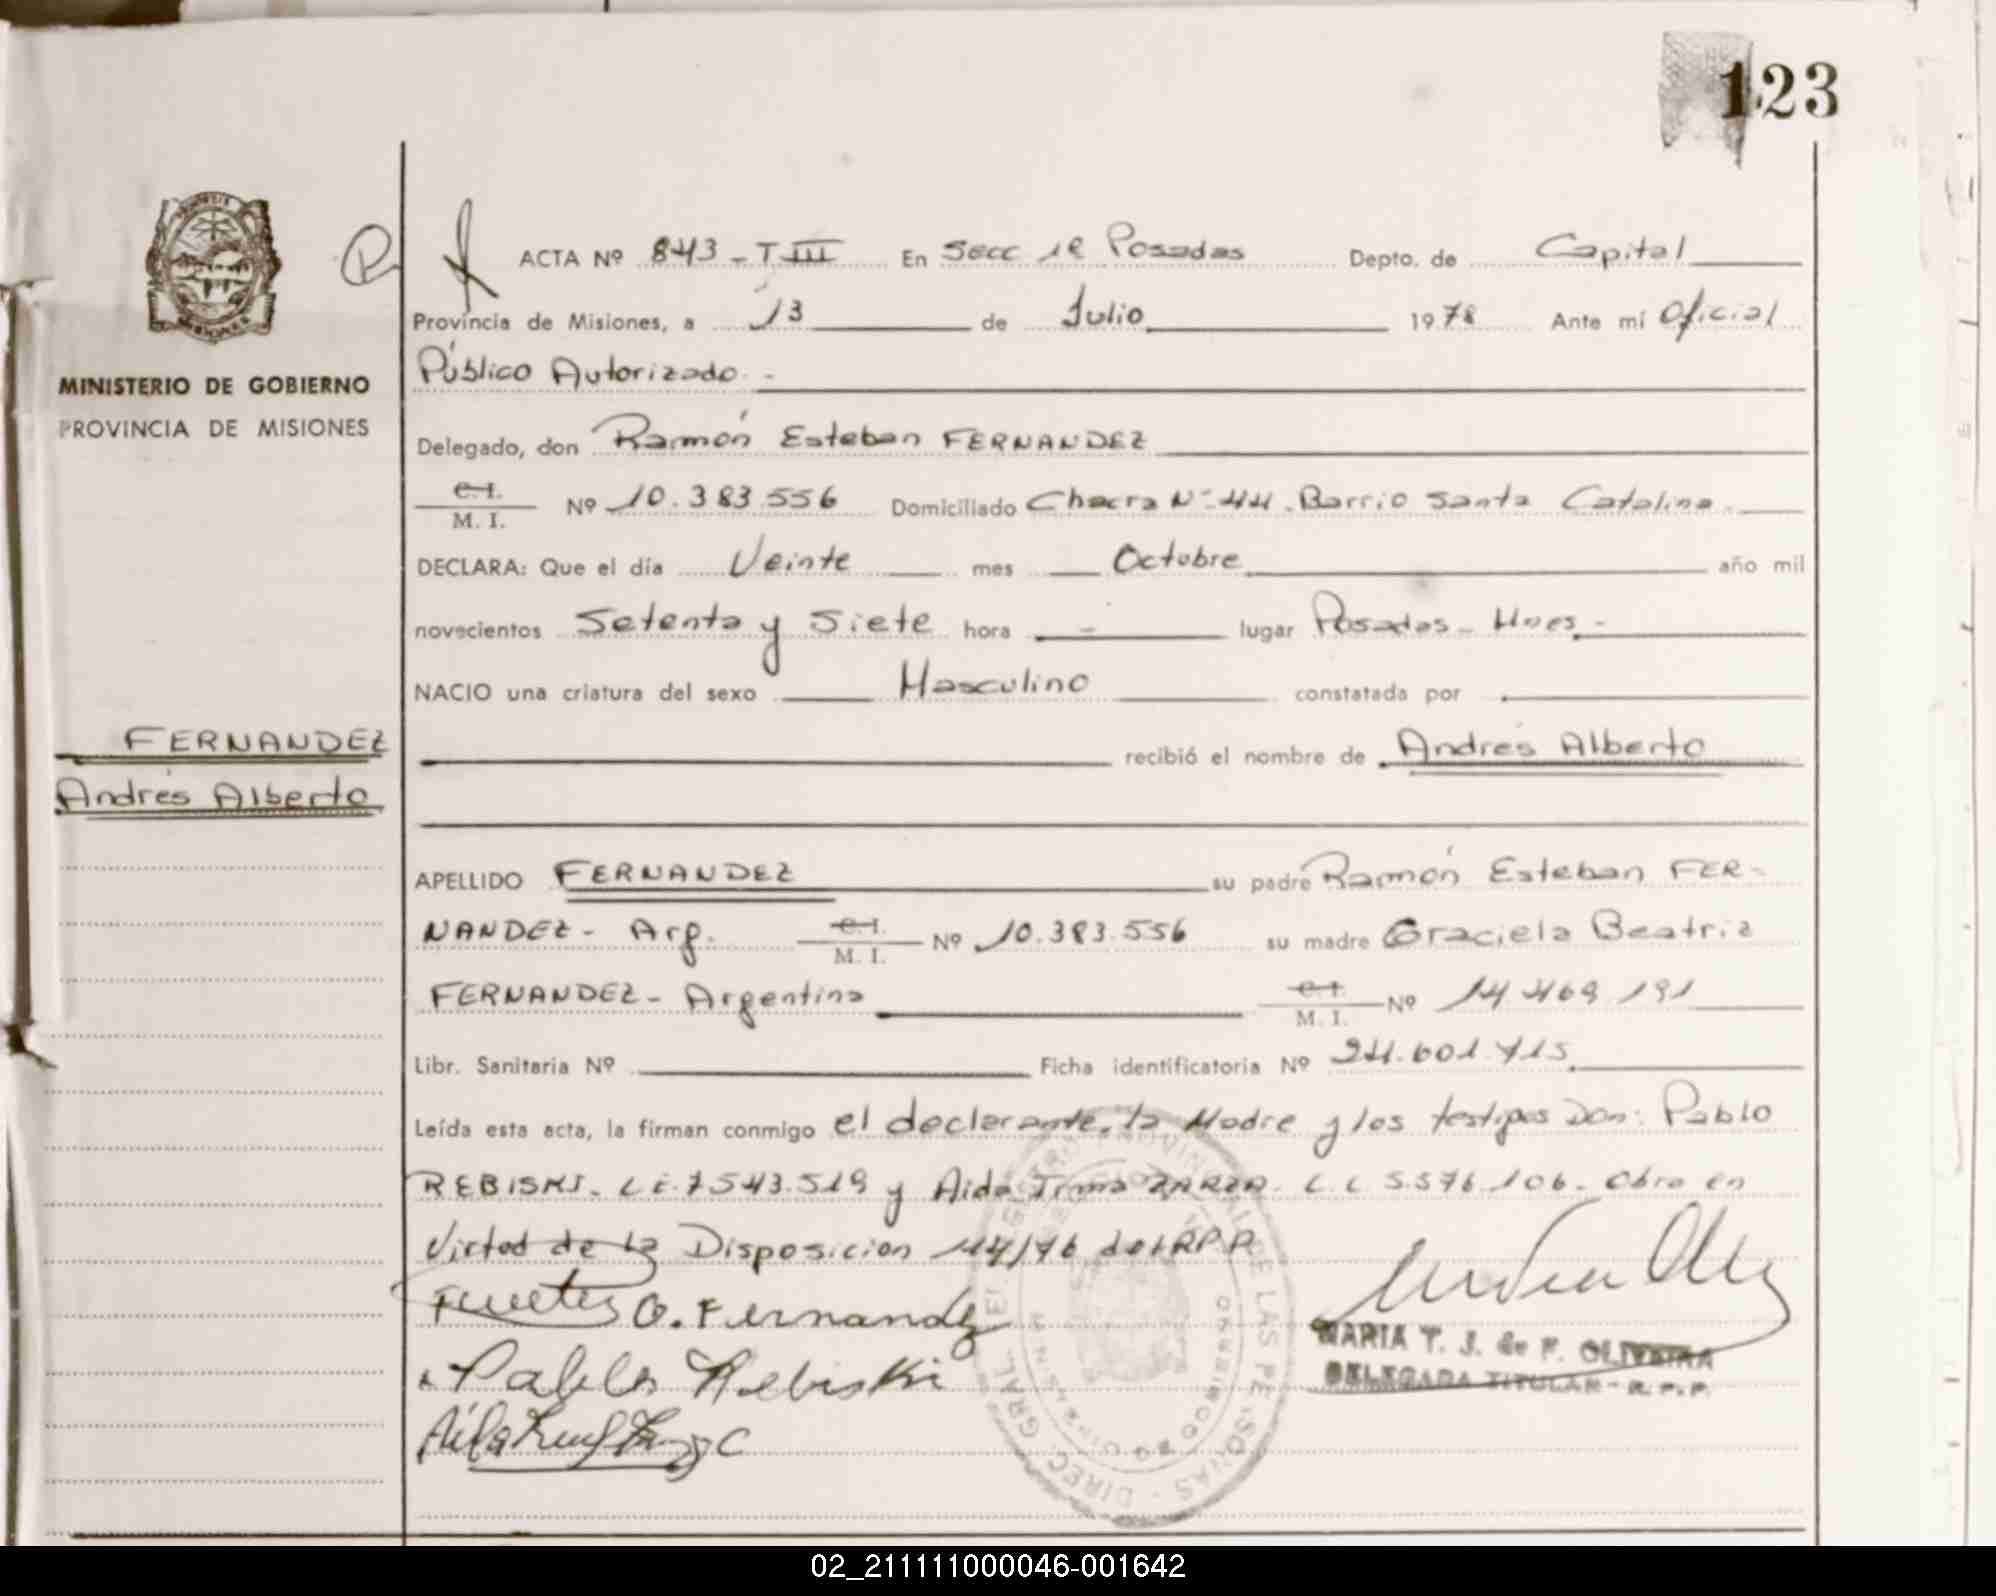 123
ACTA Nº 843 - T III En Secc 1ª Posadas Depto. de Capital
Provincia de Misiones, a 13 de Julio 1978 Ante mí Oficial
Público Autorizado. -
MINISTERIO DE GOBIERNO
PROVINCIA DE MISIONES
Delegado, don Ramón Esteban FERNANDEZ
C.I.
M. I. Nº 10.383.556 Domiciliado Chacra Nº 44. Barrio Santa Catalina.
DECLARA: Que el día Veinte mes Octubre año mil
novecientos Setenta y Siete hora - lugar Posadas - Mnes -
NACIO una criatura del sexo Masculino constatada por
FERNANDEZ
Andrés Alberto
recibió el nombre de Andrés Alberto
APELLIDO FERNANDEZ su padre Ramón Esteban FER-
NANDEZ - Arg. C.I. M. I. Nº 10.383.556 su madre Graciela Beatriz
FERNANDEZ - Argentina C.I. M. I. Nº 14.469.191
Libr. Sanitaria Nº Ficha identificatoria Nº
Leída esta acta, la firman conmigo el declarante, la Madre y los testigos Don: Pablo
REBISKI. L.E. 7.543.519 y Aida Irma ZARZA. L.C 5.576.106. Obro en
Virtud de la Disposicion 114/76 del RPP
G. Fernandez
Pablo Rebiski
MARIA T. J. de F. OLIVEIRA
DELEGADA TITULAR - R.P.P.
02_211111000046-001642